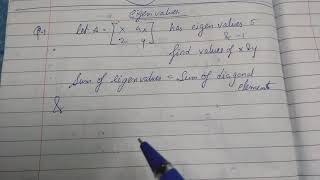 Eigen values
Q-1 let A = [x 4x has eigen values 5
2 y] & -1
find values of x & y
Sum of eigenvalues = Sum of diagonal
elements
&